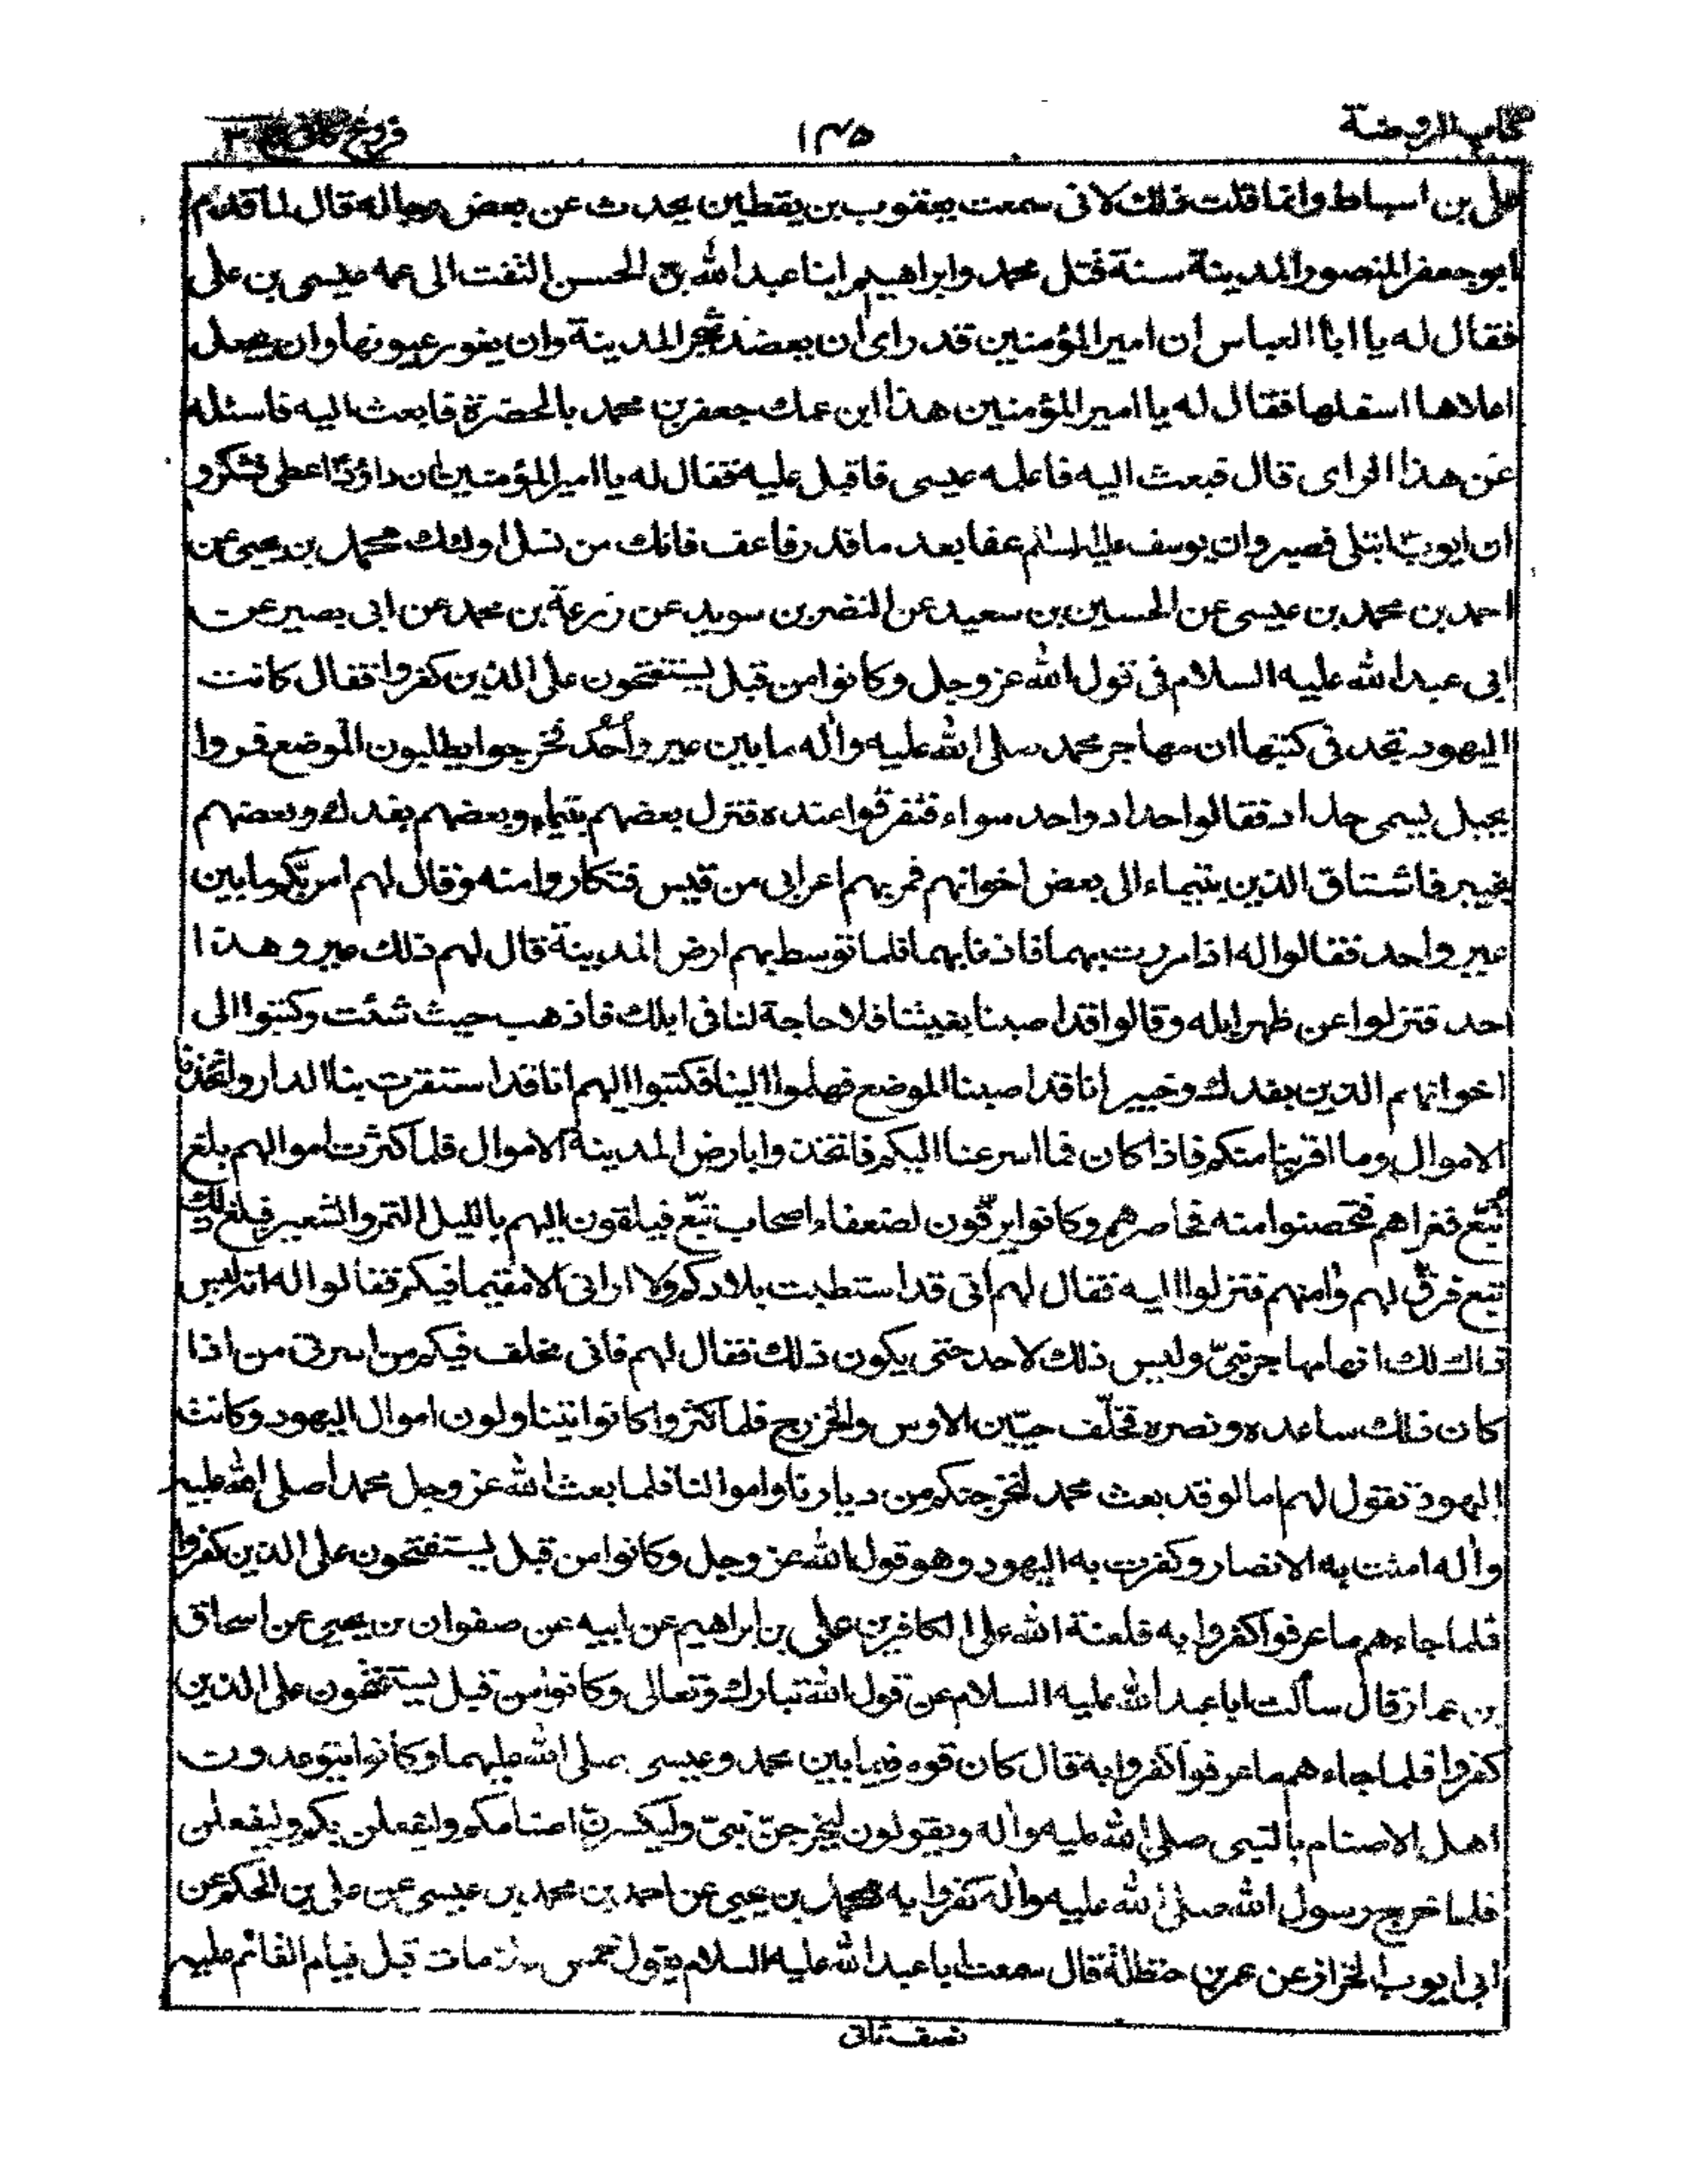 كتاب الروضة
١٣٥
فروع كافى ج ٣
على بن اسباط وانما قلت ذلك لانى سمعت يعقوب بن يقطين يحدث عن بعض رجاله قال لما قدم
ابو جعفر المنصور المدينة سنة قتل محمد وابراهيم ابنا عبد الله بن الحسن التفت الى عمه عيسى بن على
فقال له يا ابا العباس ان امير المؤمنين قد راى ان يعضد شجر المدينة وان يغور عيونها وان يجعل
اعلاها اسفلها فقال له يا امير المؤمنين هذا ابن عمك جعفر بن محمد بالحضرة فابعث اليه فاسئله
عن هذا الراى قال فبعث اليه فاعلمه عيسى فاقبل عليه فقال له يا امير المؤمنين ان داؤد اعطى فشكر و
ان ايوب ابتلى فصبر وان يوسف عليه السلام عفا بعد ما قدر فاعف فانك من نسل اولئك محمد بن يحيى عن
احمد بن محمد بن عيسى عن الحسين بن سعيد عن النضر بن سويد عن زرعة بن محمد عن ابى بصير عن
ابى عبد الله عليه السلام فى قول الله عز وجل وكانوا من قبل يستفتحون على الذين كفروا فقال كانت
اليهود تجد فى كتبها ان مهاجر محمد صلى الله عليه وآله ما بين عير واُحُد فخرجوا يطلبون الموضع فمروا
بجبل يسمى حداد فقالوا حداد واحد سواء فتفرقوا عنده فنزل بعضهم بتيماء وبعضهم بفدك وبعضهم
بخيبر فاشتاق الذين بتيماء الى بعض اخوانهم فمر بهم اعرابى من قيس فتكاروا منه وقال لهم امر بكم ما بين
عير واحد فقالوا له اذا مررت بهما فاذنا بهما فلما توسط بهم ارض المدينة قال لهم ذلك عير وهذا
احد فنزلوا عن ظهر ابله وقالوا قد اصبنا بغيتنا فلا حاجة لنا فى ابلك فاذهب حيث شئت وكتبوا الى
اخوانهم الذين بفدك وخيبر انا قد اصبنا الموضع فهلموا الينا فكتبوا اليهم انا قد استقرت بنا الدار واتخذنا
الاموال وما اقربنا منكم فاذا كان فما اسرعنا اليكم فاتخذوا بارض المدينة الاموال فلما كثرت اموالهم بلغ
تُبّع فغزاهم فتحصنوا منه فحاصرهم وكانوا يرقّون لضعفاء اصحاب تبّع فيلقون اليهم بالليل التمر والشعير فبلغ ذلك
تبع فرقّ لهم وامنهم فنزلوا اليه فقال لهم انى قد استطبت بلادكم ولا ارانى الا مقيما فيكم فقالوا له انه ليس
ذاك لك انها مهاجر نبىّ وليس ذلك لاحد حتى يكون ذلك فقال لهم فانى مخلف فيكم من اسرتى من اذا
كان ذلك ساعده ونصره فخلّف حيّين الاوس والخزرج فلما كثروا كانوا يتناولون اموال اليهود وكانت
اليهود تقول لهم اما لو قد بعث محمد لنخرجنكم من ديارنا واموالنا فلما بعث الله عز وجل محمدا صلى الله عليه
وآله امنت به الانصار وكفرت به اليهود وهو قول الله عز وجل وكانوا من قبل يستفتحون على الذين كفروا
فلما جاءهم ما عرفوا كفروا به فلعنة الله على الكافرين على بن ابراهيم عن ابيه عن صفوان بن يحيى عن اسحاق
بن عمار قال سألت ابا عبد الله عليه السلام عن قول الله تبارك وتعالى وكانوا من قبل يستفتحون على الذين
كفروا فلما جاءهم ما عرفوا كفروا به قال كان قوم فيما بين محمد وعيسى صلى الله عليهما وكانوا يتوعدون
اهل الاصنام بالنبى صلى الله عليه وآله ويقولون ليخرجنّ نبىّ وليكسرنّ اصنامكم وليفعلن بكم وليفعلن
فلما خرج رسول الله صلى الله عليه وآله كفروا به محمد بن يحيى عن احمد بن محمد بن عيسى عن على بن الحكم عن
ابى ايوب الخزاز عن عمر بن حنظلة قال سمعت ابا عبد الله عليه السلام يقول خمس علامات قبل قيام القائم عليه
نصف ثانى